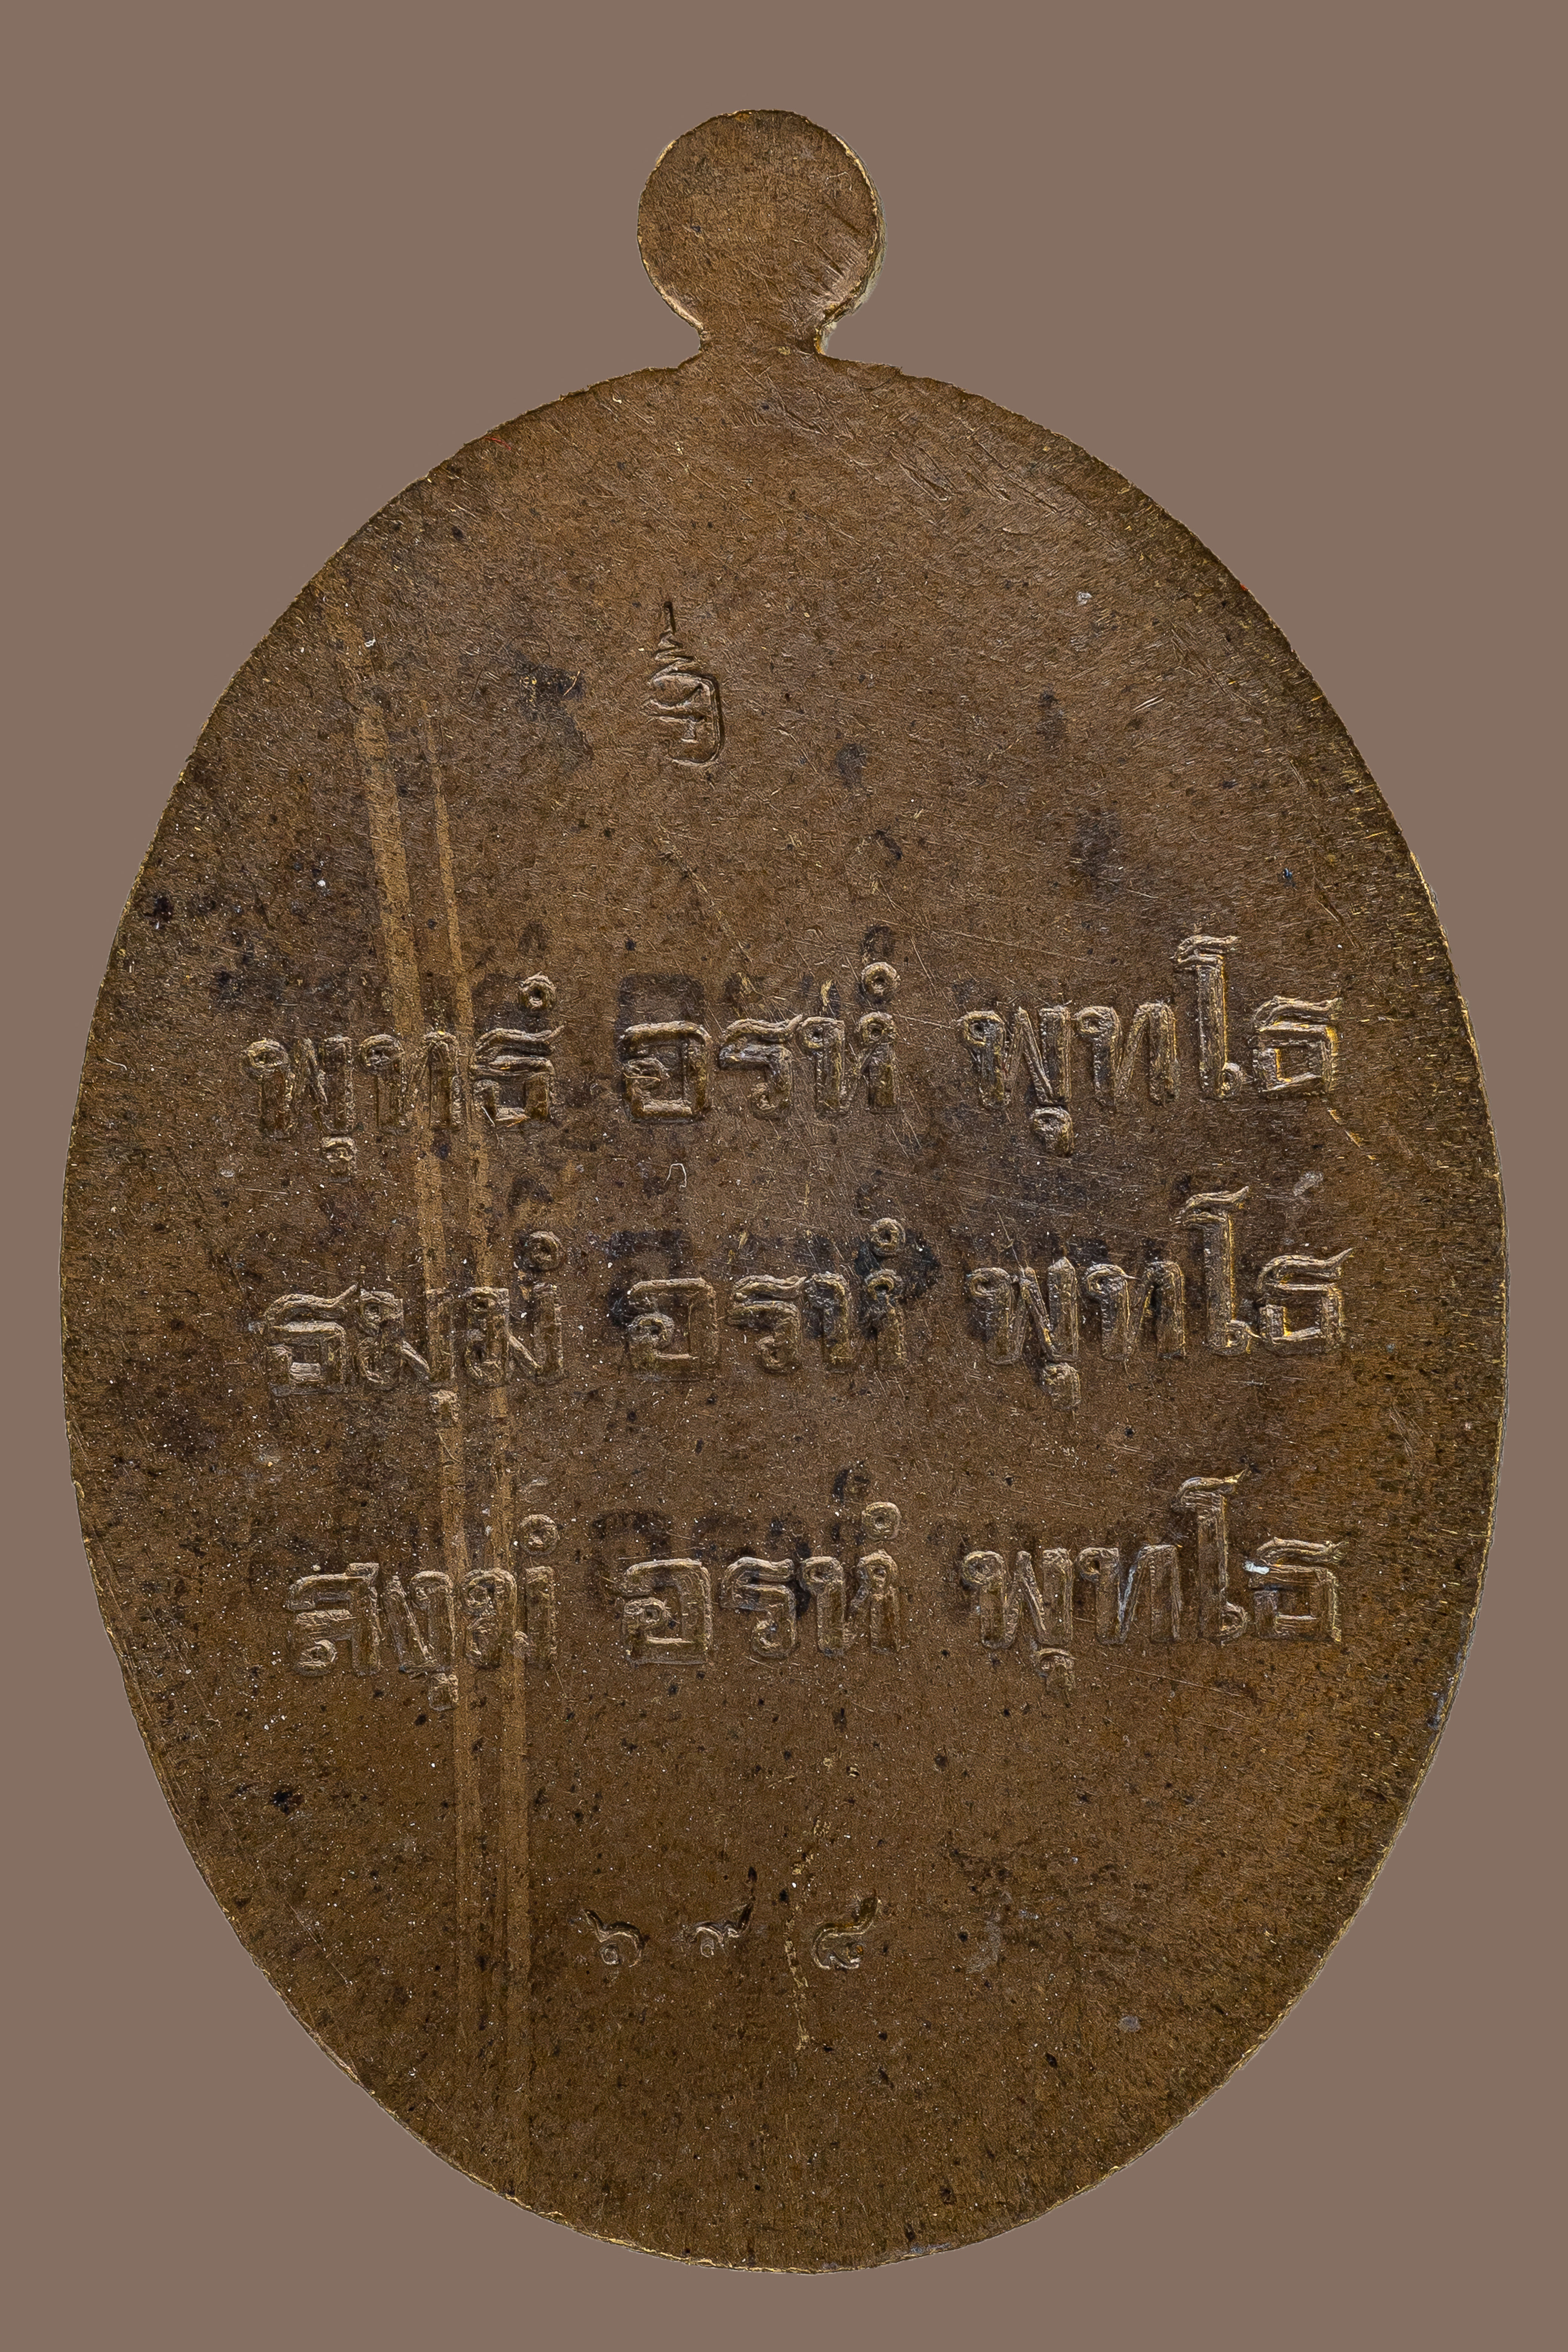 พุทธํ อรหํ พุทโธ
ธมฺมํ อรหํ พุทโธ
สงฺฆํ อรหํ พุทโธ
๖๙๔